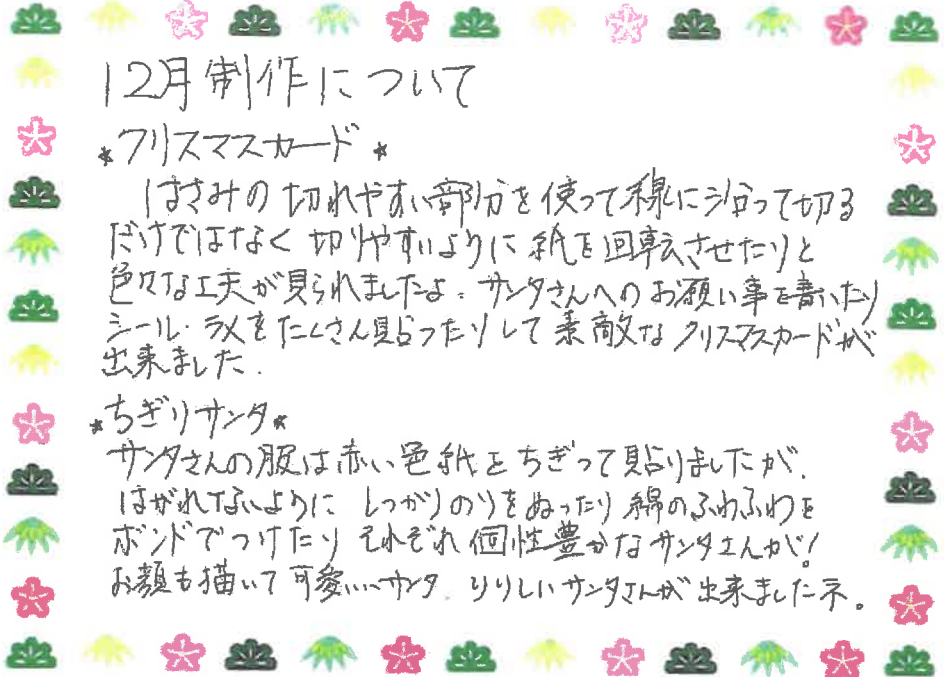 12月制作について
*クリスマスカード*
はさみの切れやすい部分を使って線に沿って切る
だけではなく切りやすいように紙を回転させたりと
色々な工夫が見られましたよ.サンタさんへのお願い事を書いたり
シール・ラメをたくさん貼ったりして素敵なクリスマスカードが
出来ました.
*ちぎりサンタ*
サンタさんの服は赤い色紙をちぎって貼りましたが、
はがれないように しっかりのりをぬったり 綿のふわふわを
ボンドでつけたり それぞれ個性豊かなサンタさんが!
お顔も描いて可愛いサンタ りりしいサンタさんが出来ましたネ。